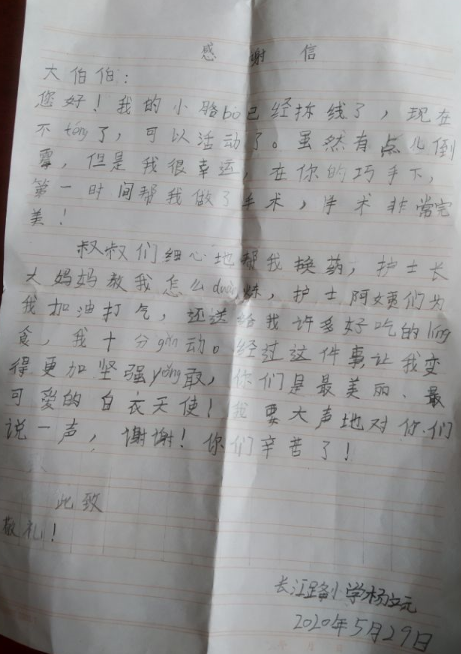 感谢信
大伯伯：
您好！我的小胳bo已经拆线了，现在
不tóng了，可以活动了。虽然有点儿倒
霉，但是我很幸运，在你的巧手下，
第一时间帮我做了手术，手术非常完
美！
叔叔们细心地帮我换药，护士长
大妈妈教我怎么duàn炼，护士阿姨们为
我加油打气，还送给我许多好吃的líng
食，我十分gǎn动。经过这件事让我变
得更加坚强yǒng敢，你们是最美丽、最
可爱的白衣天使！我要大声地对你们
说一声，谢谢！你们辛苦了！
此致
敬礼！
长江路小学杨立元
2020年5月29日